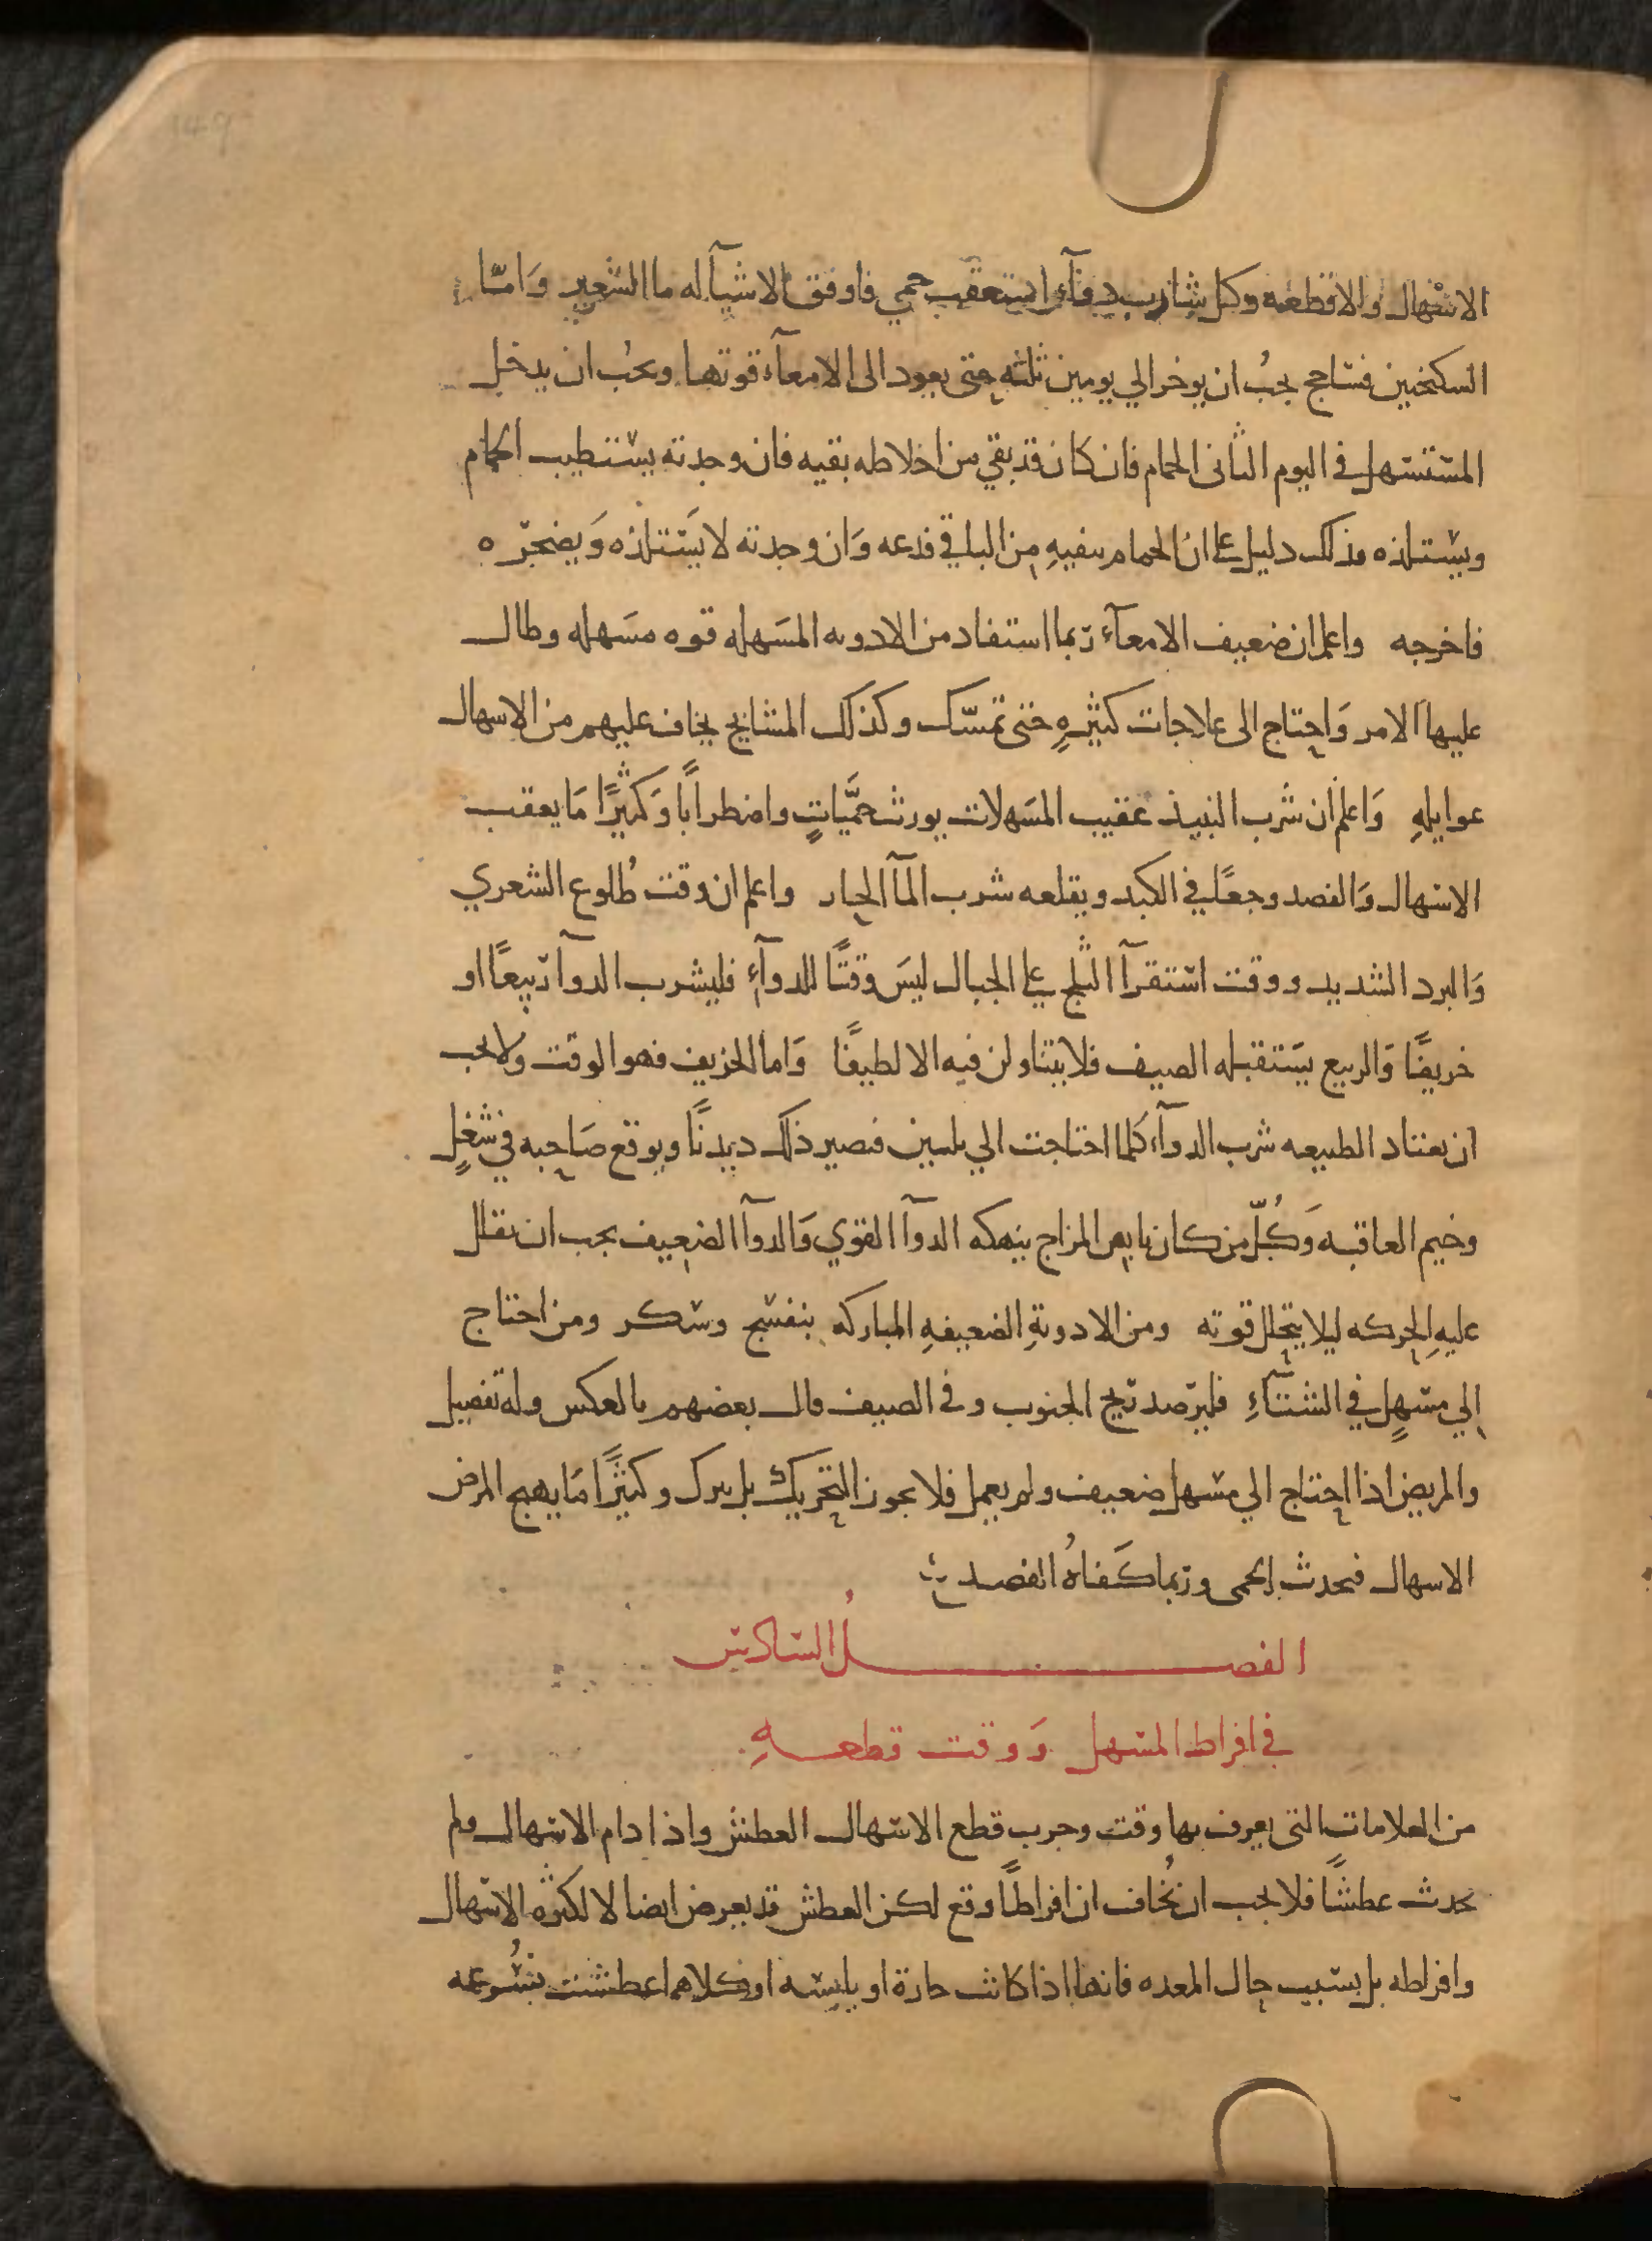 الاسهال والاقطعه وكل شارب دوآء استعقب حمي فاوفق الاشيآ له ما الشعير وَامّا
السكنجبين فساحج يجبُ ان يوخر الي يومين ثلثه حتى يعود الى الامعآء قوتها ويجبُ ان يدخل
المستسهل في اليوم الثانى الحمام فان كان قد بقي من اخلاطه بقيه فان وجدته يستطيب الحمام
ويستلذه فذلك دليل على ان الحمام ينقيهِ من الباقي فدعه وَان وجدته لا يَستلذه وَيضجره
فاخرجه واعلم ان ضعيف الامعآء ربما استفاد من الادويه المسَهله قوه مسَهله وطال
عليها الامر وَاحتاج الى علاجات كثيرهٍ حتى تمسّك وكذلك المشايخ يخاف عليهم من الاسهال
غوايلهِ وَاعلم ان شَرب النبيذ عقيب المسَهلات يورث حمَّياتٍ واضطراباً وَكثيرًا مَا يعقب
الاسهال وَالفصد وجعًا في الكبد ويقلعه شرب المآ الحار واعلم ان وقت طُلوع الشعري
وَالبرد الشديد ووقت استقرآ الثلج على الجبال ليسَ وقتًا للدوآءِ فليشرب الدوآ ربيعًا او
خريفًا وَالربيع يستقبله الصيف فلا يتناولن فيه الا لطيفًا وَاما الخريف فهو الوقت ولا يجب
ان تعتاد الطبيعه شرب الدوآء كلما احتاجت الي تليين فيصير ذلك ديدنًا ويوقع صَاحبه في شغلٍ
وخيم العاقبه وَكُلّ من كان يابس المزاج ينهكه الدوآ القوي وَالدوآ الضعيف يجب ان يقلل
عليهِ الحركه ليلا يتحلل قوته ومن الادويةِ الضعيفهِ المباركه بنفسج وسكر ومن احتاج
الي مسهلٍ في الشتآءِ فليرصد ريح الجنوب وفى الصيف قال بعضهم بالعكس وله تفصيل
والمريض اذا احتاج الي مسهل ضعيف ولم يعمل فلا يجوز التحريك بل يترك وكثيرًا مَا يهيج المرض
الاسهال فيحدث الحمى وربما كَفاهُ الفصد
الفصلُ السادس
في افراط المسهل وَوقت قطعهِ
من العلامات التى يعرف بها وقت وجوب قطع الاسهال العطش واذا دام الاسهال ولم
يحدث عطشًا فلا يجب ان نُخاف ان افراطًا وقع لكن العطش قد يعرض ايضا لا لكثره الاسهال
وافراطه بل بسبب حال المعده فانها اذا كانت حارة او يابسه او كلاهما اعطشت بسُرعه